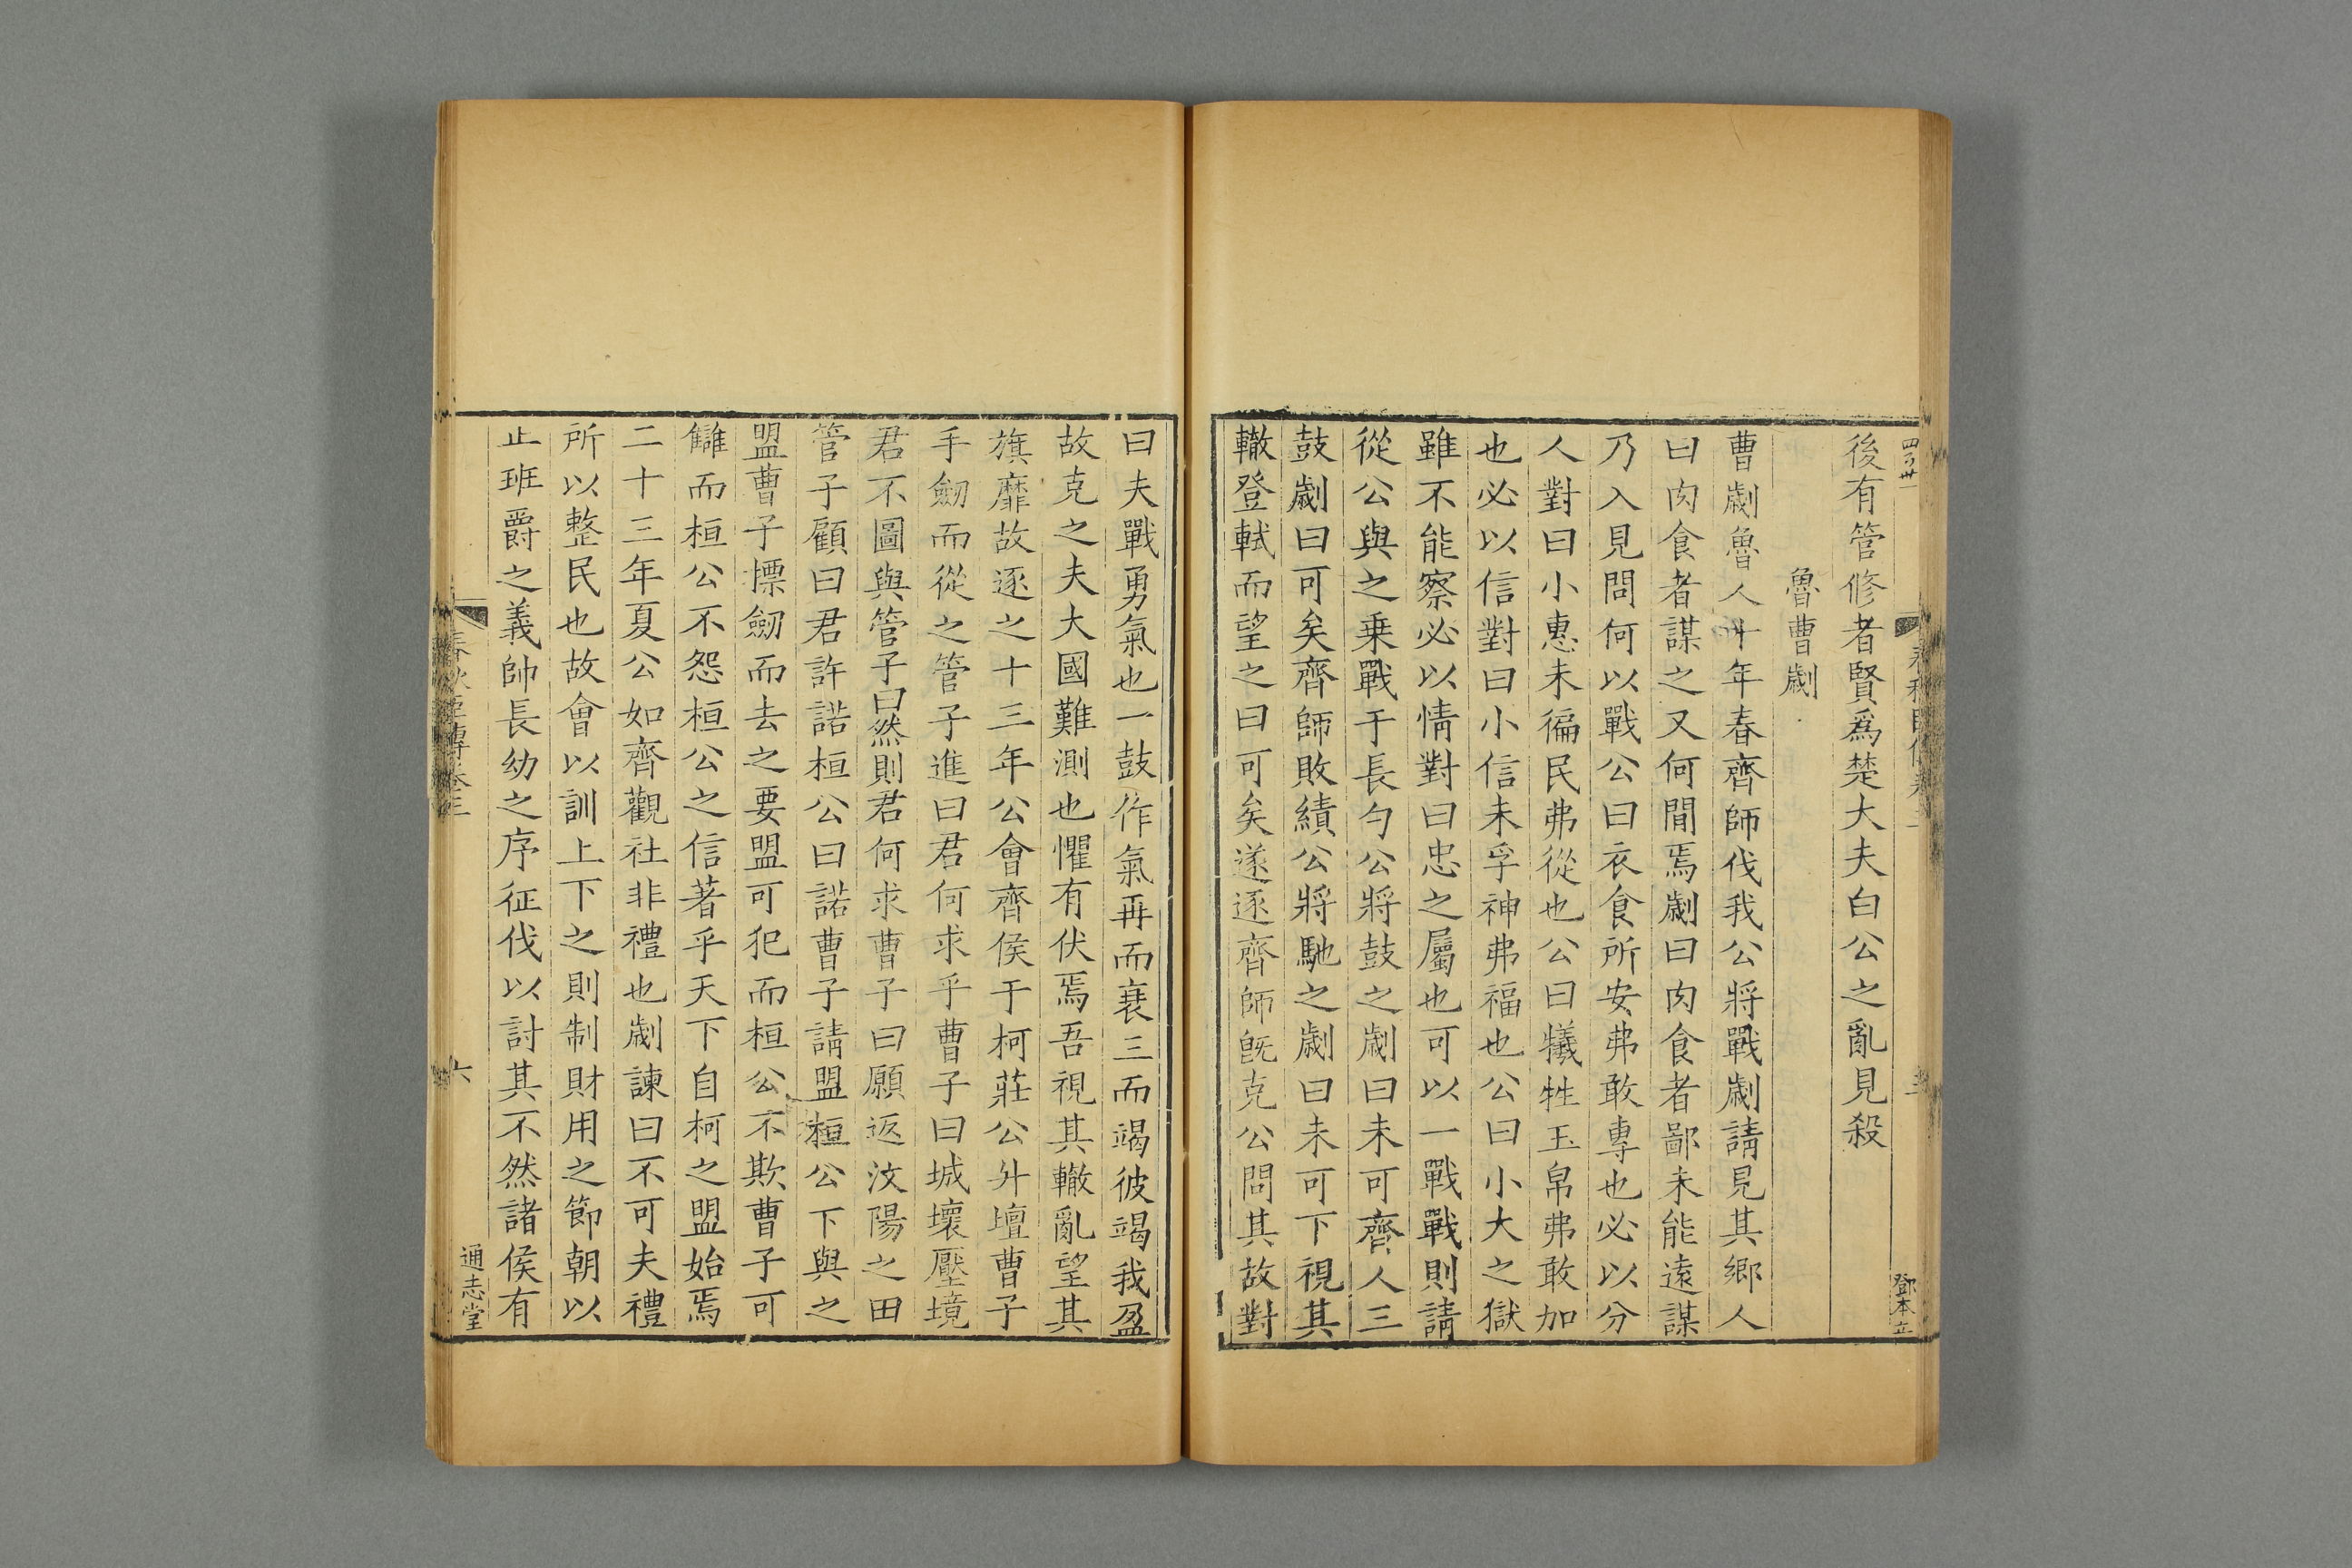 後有管修者賢爲楚大夫白公之亂見殺
魯曹劌
曹劌魯人十年春齊師伐我公將戰劌請見其鄉人
曰肉食者謀之又何間焉劌曰肉食者鄙未能遠謀
乃入見問何以戰公曰衣食所安弗敢專也必以分
人對曰小惠未徧民弗從也公曰犧牲玉帛弗敢加
也必以信對曰小信未孚神弗福也公曰小大之獄
雖不能察必以情對曰忠之屬也可以一戰戰則請
從公與之乗戰于長勺公將鼓之劌曰未可齊人三
鼓劌曰可矣齊師敗績公將馳之劌曰未可下視其
轍登軾而望之曰可矣遂逐齊師旣克公問其故對
曰夫戰勇氣也一鼓作氣再而衰三而竭彼竭我盈
故克之夫大國難測也懼有伏焉吾視其轍亂望其
旗靡故逐之十三年公會齊侯于柯莊公升壇曹子
手劒而從之管子進曰君何求乎曹子曰城壞壓境
君不圖與管子曰然則君何求曹子曰願返汶陽之田
管子顧曰君許諾桓公曰諾曹子請盟桓公下與之
盟曹子摽劒而去之要盟可犯而桓公不欺曹子可
讎而桓公不怨桓公之信著乎天下自柯之盟始焉
二十三年夏公如齊觀社非禮也劌諫曰不可夫禮
所以整民也故會以訓上下之則制財用之節朝以
正班爵之義帥長幼之序征伐以討其不然諸侯有
春秋臣傳卷三
六
通志堂